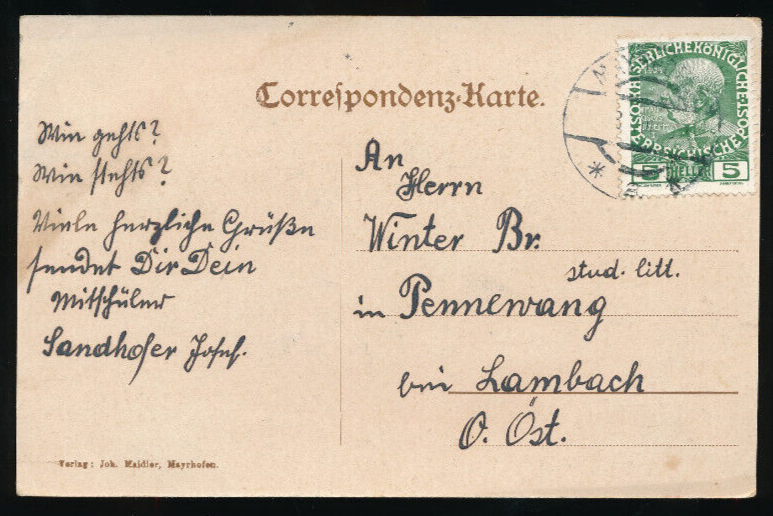 Correspondenz-Karte.
Wie gehts?
Wie stehts?
Viele herzliche Grüße
sendet Dir Dein
Mitschüler
Sandhofer Josef.
An
Herrn
Winter Br.
stud. litt.
in Pennewang
bei Lambach
O. Öst.
Verlag: Joh. Maidler, Mayrhofen.
KAISERLICHE KÖNIGLICHE ÖSTERREICHISCHE POST
5 HELLER 5